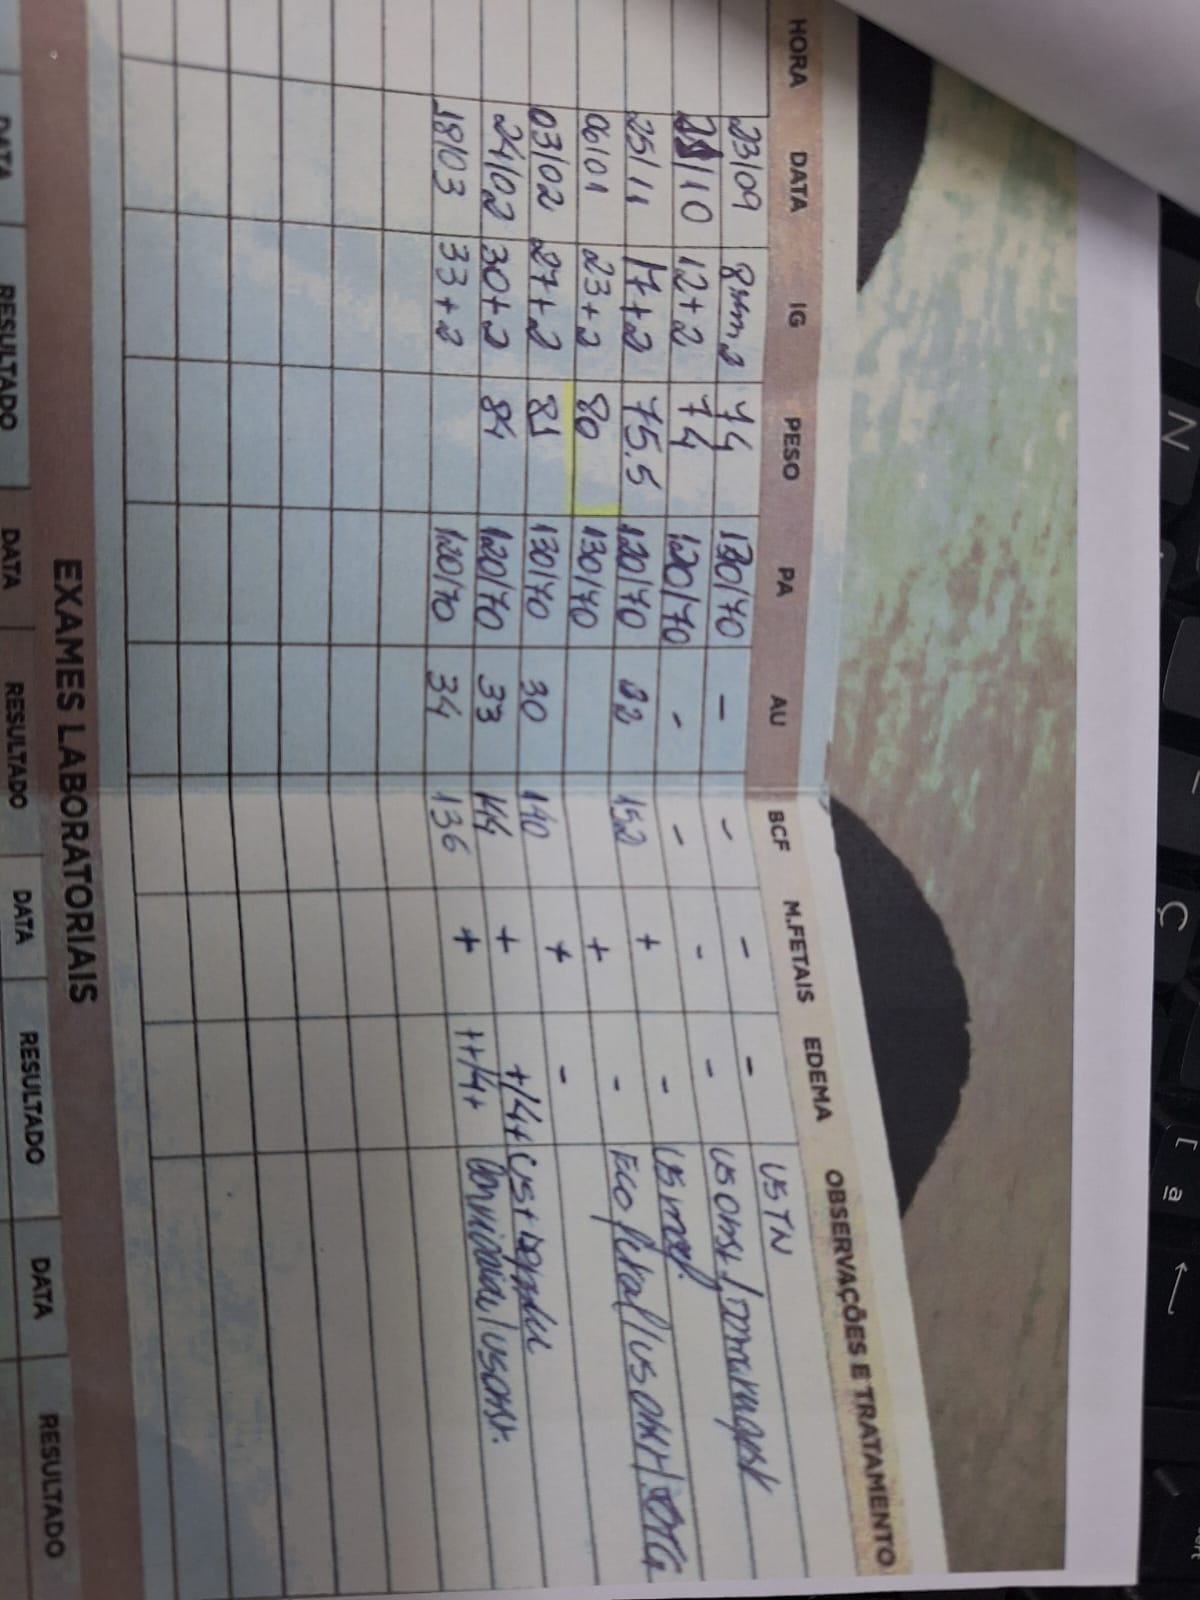 HORA DATA IG PESO PA AU BCF M.FETAIS EDEMA OBSERVAÇÕES E TRATAMENTO
23/09 8sem2 74 130/70 - - - - USTN
/10 12+2 74 120/70 - - - - US obst /
25/11 17+2 75.5 120/70 22 152 + - US morf.
06/01 23+2 80 130/70 + - Eco fetal / US obst /
03/02 27+2 81 130/70 30 140 + -
24/02 30+2 84 120/70 33 144 + +/4+ US +
18/03 33+2 120/70 34 136 + ++/4+ / US obst.
EXAMES LABORATORIAIS
DATA RESULTADO DATA RESULTADO DATA RESULTADO DATA RESULTADO
N
Ç
[
ª
←